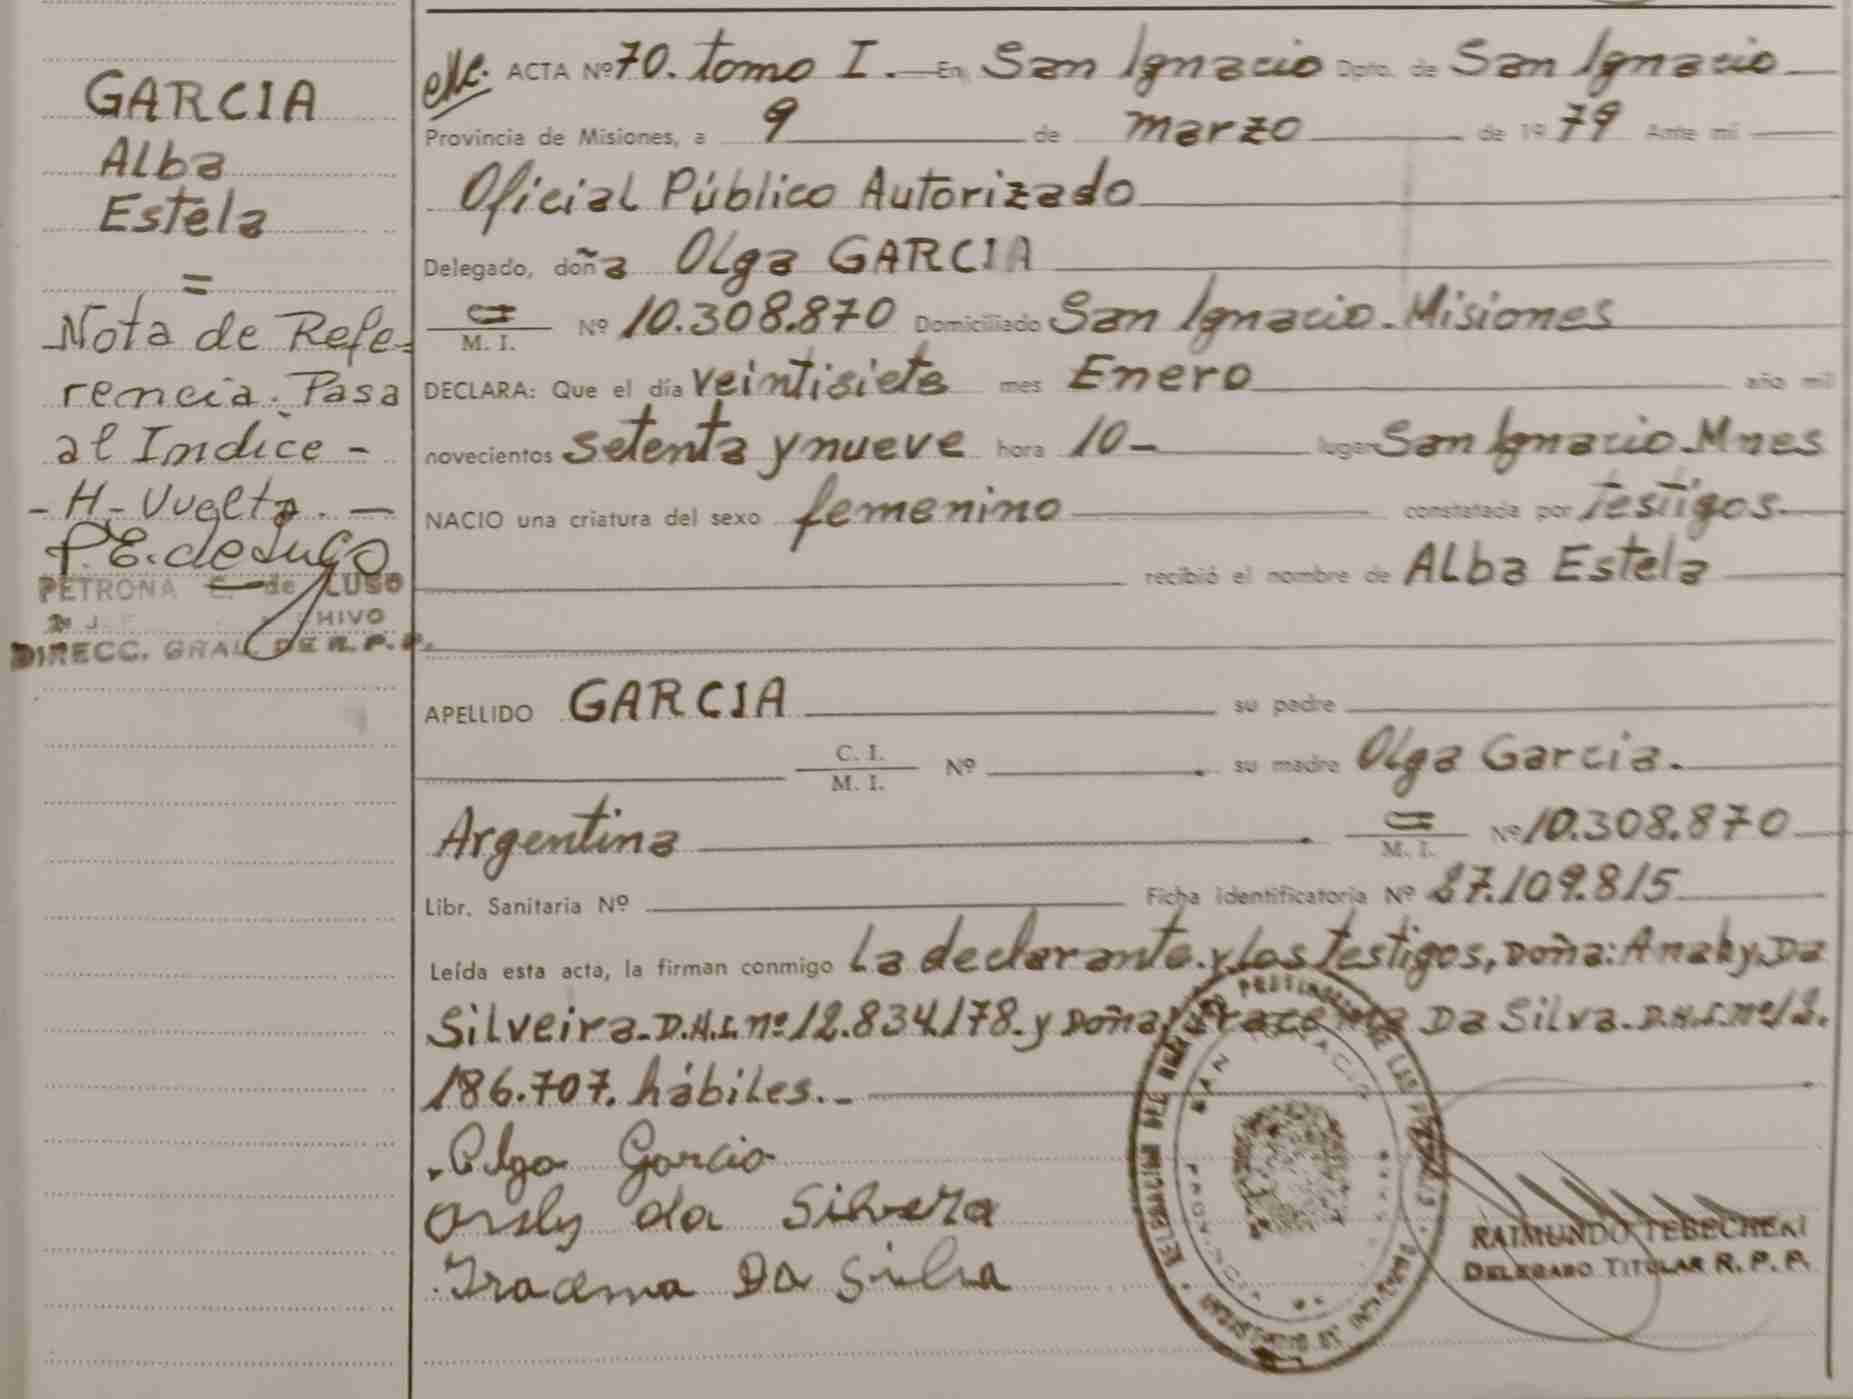 GARCIA
Alba
Estela
=
Nota de Refe-
rencia. Pasa
al Indice -
- H- Vuelta. -
P.E. de Lugo
PETRONA E. de LUGO
HIVO
DIRECC. GRAL. DE R.P.P.
ACTA Nº 70. tomo I. En San Ignacio Dpto. de San Ignacio
Provincia de Misiones, a 9 de marzo de 1979 Ante mí
Oficial Público Autorizado
Delegado, doña Olga GARCIA
M. I. Nº 10.308.870 Domiciliado San Ignacio. Misiones
DECLARA: Que el día veintisiete mes Enero año mil
novecientos setenta y nueve hora 10- lugar San Ignacio. Mnes
NACIO una criatura del sexo femenino constatada por Testigos
recibió el nombre de Alba Estela
APELLIDO GARCIA su padre
C. I.
M. I. Nº su madre Olga Garcia.
Argentina M. I. Nº 10.308.870
Libr. Sanitaria Nº Ficha identificatoria Nº 27.109.815
Leída esta acta, la firman conmigo La declarante. y Los Testigos, Doña: Anahy Da
Silveira. D.N.I. nº 12.834.178. y Doña Iracema Da Silva. D.N.I. nº 12.
186.707. hábiles.-
Olga Garcia
da Silvera
Iracema Da Silva
SAN IGNACIO
PROVINCIA
RAIMUNDO TEBECHERI
DELEGADO TITULAR R. P. P.